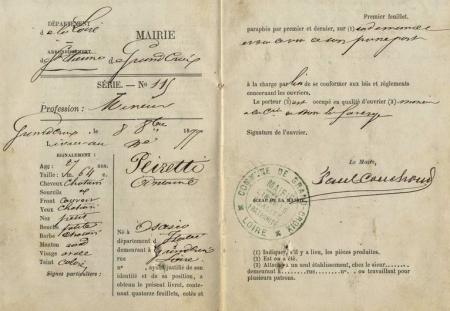 DÉPARTEMENT
de la Loire
ARRONDISSEMENT
de St Etienne
MAIRIE
de Grand'Croix
SÉRIE. — No 115
Profession: Mineur
Grand'Croix, le 8 8bre 18
SIGNALEMENT:
Age: 27 ans
Taille: 1m 64 c.
Cheveux Chatain
Sourcils id
Front couvert
Yeux Chatain
Nez petit
Bouche petite
Barbe Chatain
Menton rond
Visage ovale
Teint coloré
Signes particuliers:
Peiretti
Antoine
Né à Osasco
département d Italie
demeurant à Grand'Croix
Loire
r no , ayant justifié de son
identité et de sa position, a
obtenu le présent livret, conte-
nant quatorze feuillets, cotés et
Premier feuillet.
paraphés par premier et dernier, sur (1)
passeport
à la charge par lui de se conformer aux lois et règlements
concernant les ouvriers.
Le porteur (2) est occupé en qualité d'ouvrier (3) mineur
Signature de l'ouvrier.
Le Maire,
Paul Couchoud
SCEAU DE LA MAIRIE.
COMMUNE DE GRAND CROIX
MAIRIE
LOIRE
(1) Indiquer, s'il y a lieu, les pièces produites.
(2) Est ou a été.
(3) Attaché à un établissement, chez le sieur
demeurant à rue no. — ou travaillant pour
plusieurs patrons.